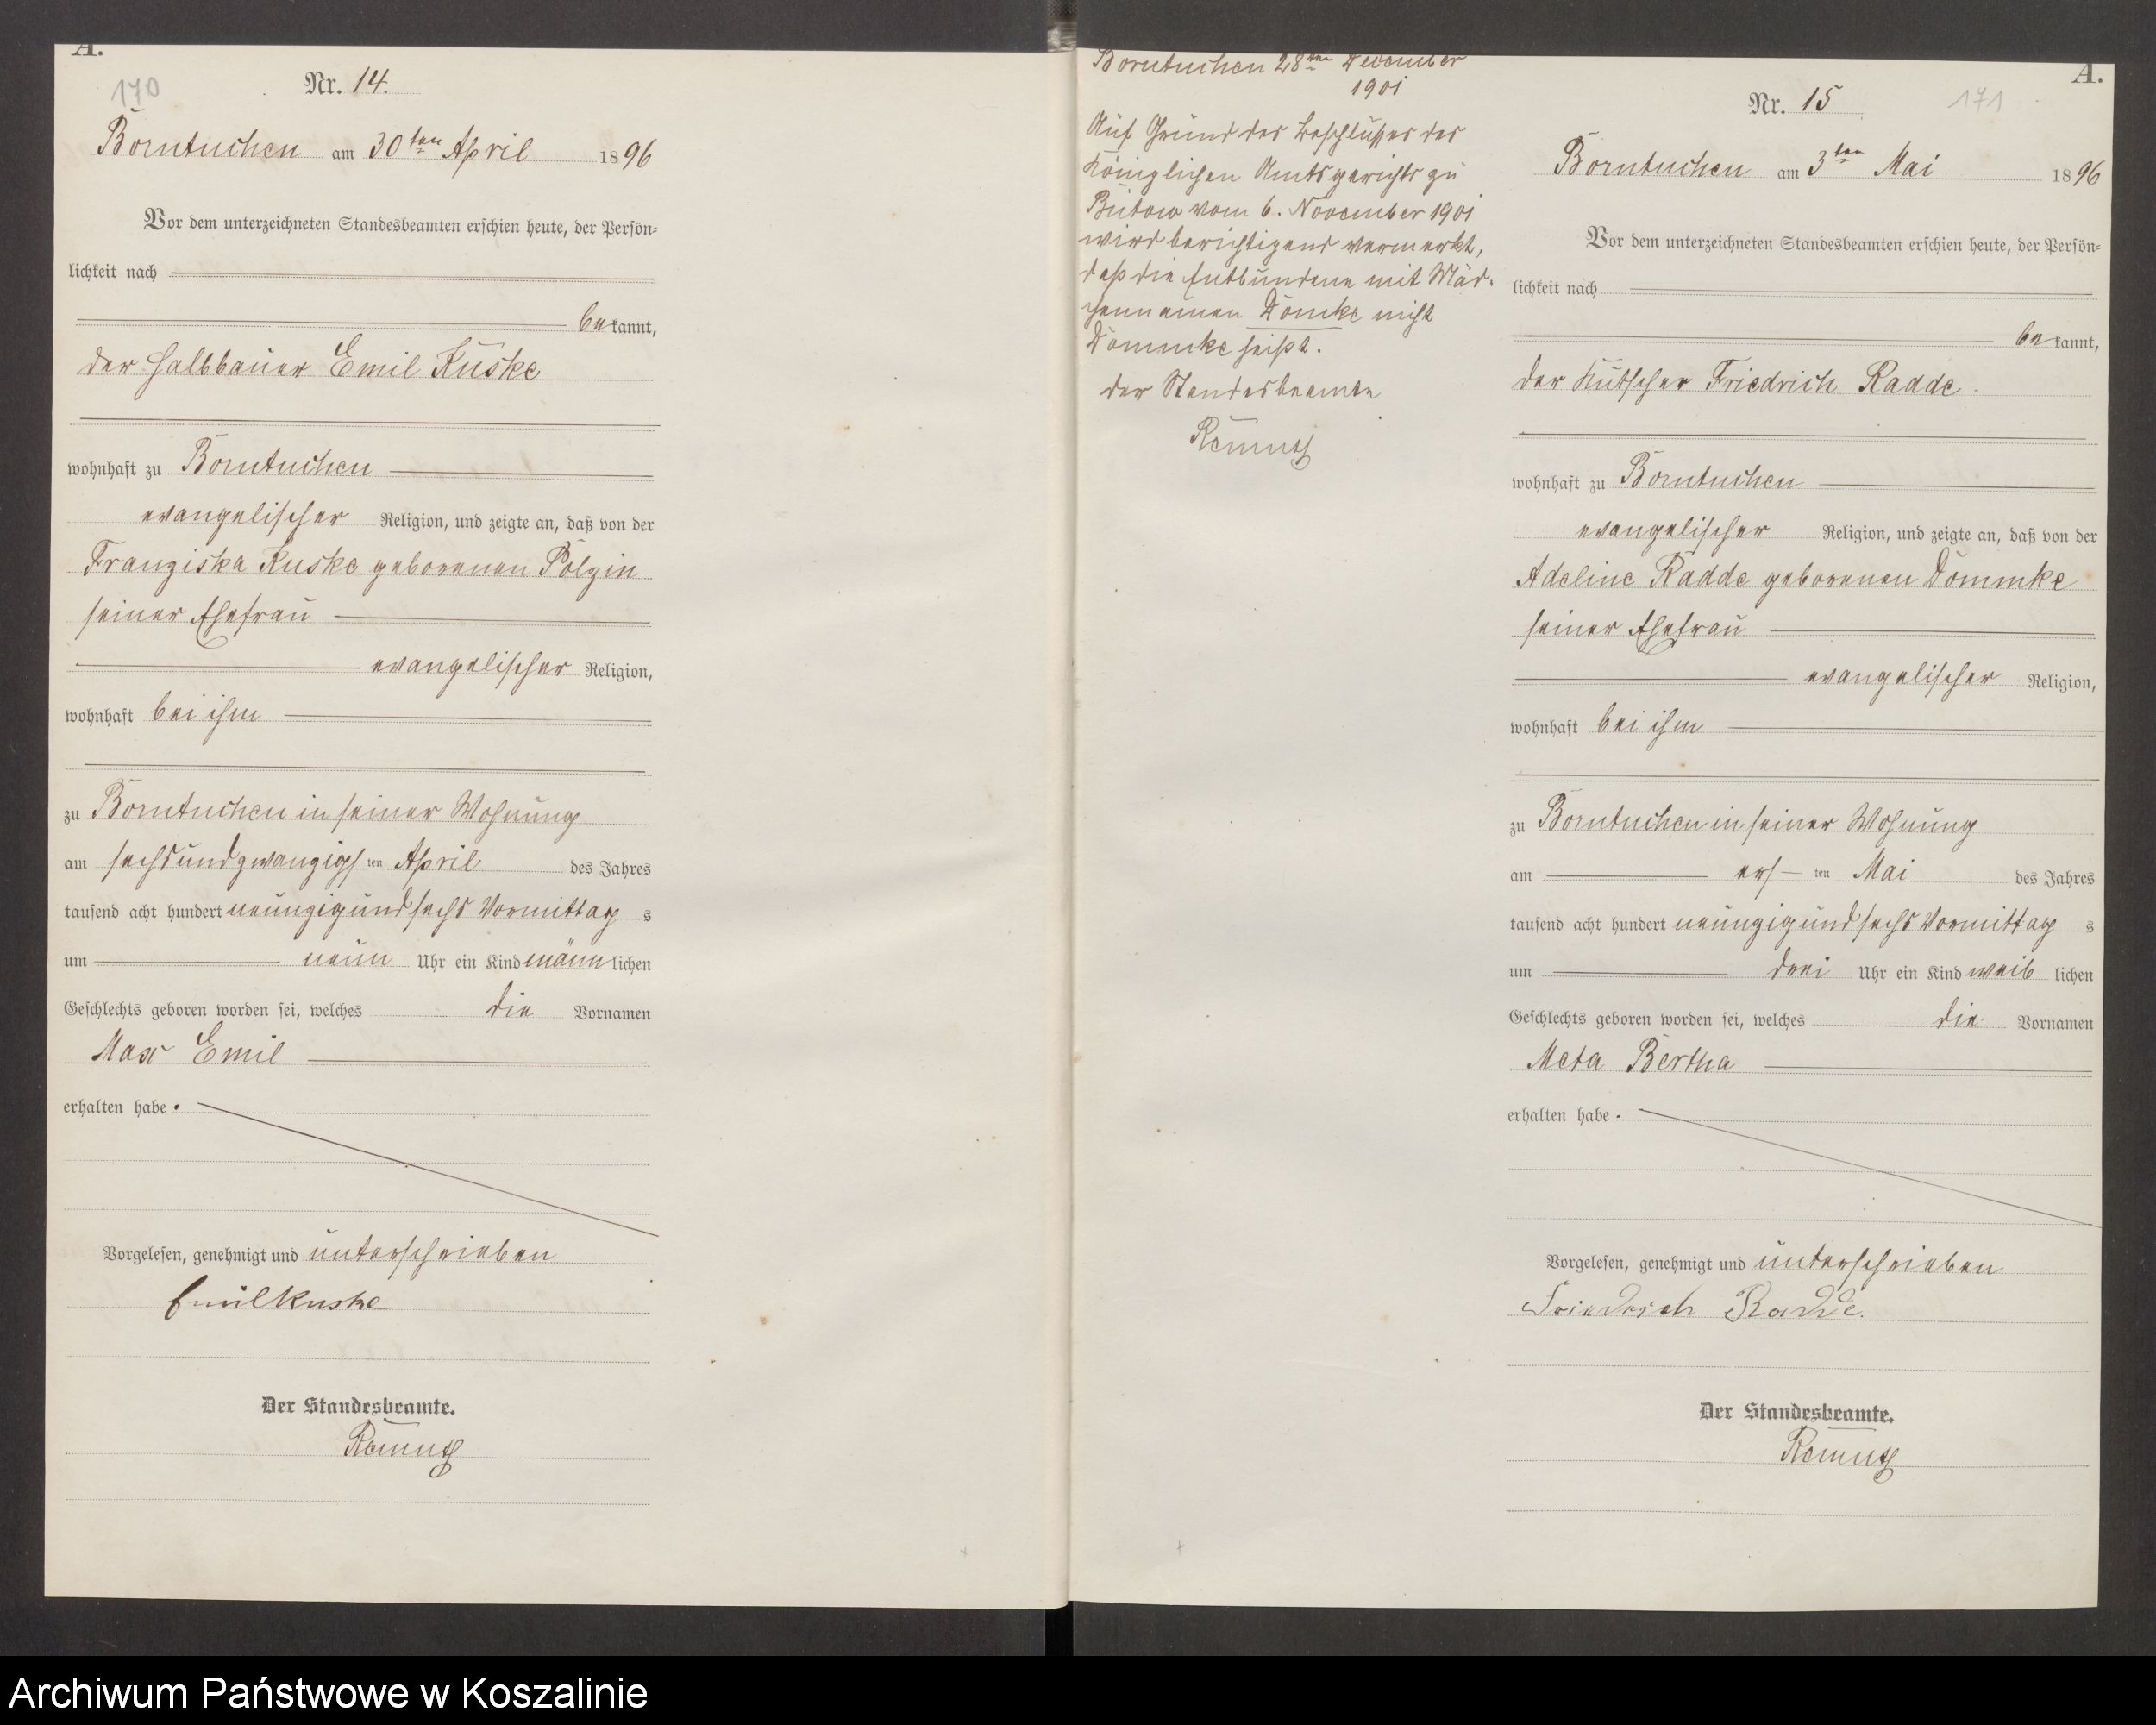 A.
170
Nr. 14.
Borntuchen am 30ten April 1896
Vor dem unterzeichneten Standesbeamten erschien heute, der Persön-
lichkeit nach
bekannt,
der Halbbauer Emil Kuske
wohnhaft zu Borntuchen
evangelischer Religion, und zeigte an, daß von der
Franziska Kuske geborenen Polzin
seiner Ehefrau
evangelischer Religion,
wohnhaft bei ihm
zu Borntuchen in seiner Wohnung
am sechsundzwanzigsten April des Jahres
tausend acht hundert neunzig und sechs Vormittags
um neun Uhr ein Kind männlichen
Geschlechts geboren worden sei, welches die Vornamen
Max Emil
erhalten habe.
Vorgelesen, genehmigt und unterschrieben
Emil Kuske
Der Standesbeamte.
Borntuchen 28ten December
1901
Auf Grund des Beschlusses des
Königlichen Amtsgerichts zu
Bütow vom 6. November 1901
wird berichtigend vermerkt,
daß die Entbundene mit Mäd-
chennamen Dömke nicht
Dömmke heißt.
der Standesbeamte
A.
171
Nr. 15
Borntuchen am 3ten Mai 1896
Vor dem unterzeichneten Standesbeamten erschien heute, der Persön-
lichkeit nach
bekannt,
der Kutscher Friedrich Radde.
wohnhaft zu Borntuchen
evangelischer Religion, und zeigte an, daß von der
Adeline Radde geborenen Dömmke
seiner Ehefrau
evangelischer Religion,
wohnhaft bei ihm
zu Borntuchen in seiner Wohnung
am ersten Mai des Jahres
tausend acht hundert neunzig und sechs Vormittags
um drei Uhr ein Kind weiblichen
Geschlechts geboren worden sei, welches die Vornamen
Meta Bertha
erhalten habe.
Vorgelesen, genehmigt und unterschrieben
Friedrich Radde.
Der Standesbeamte.
Archiwum Państwowe w Koszalinie